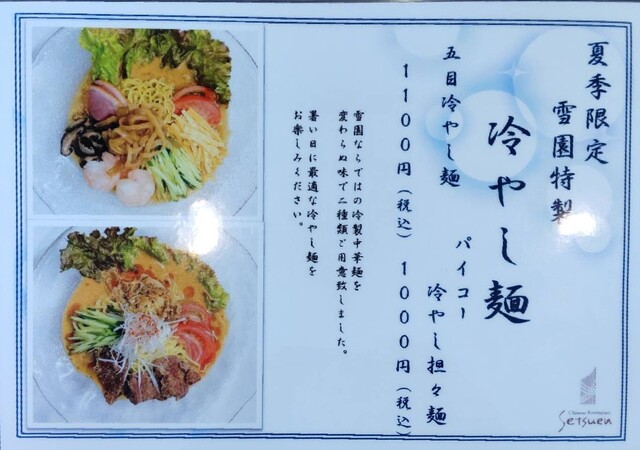 夏季限定
雪園特製
冷やし麺
五目冷やし麺
1100円（税込）
パイコー
冷やし担々麺
1000円（税込）
雪園ならではの冷製中華麺を
変わらぬ味で二種類ご用意致しました。
暑い日に最適な冷やし麺を
お楽しみください。
Chinese Restaurant
Setsuen